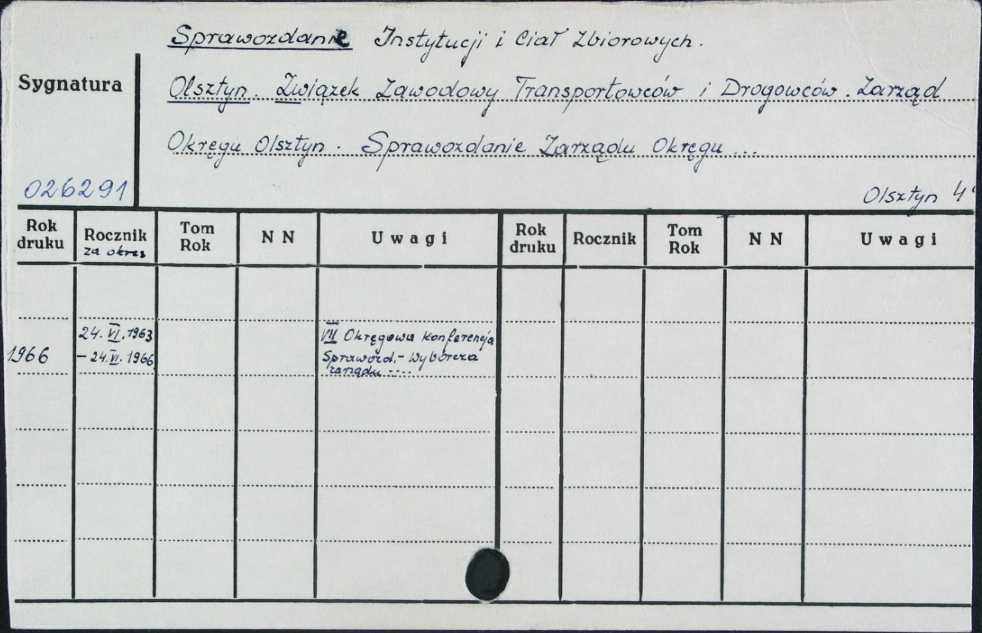 Sprawozdanie Instytucji i Ciał Zbiorowych.
Sygnatura
Olsztyn. Związek Zawodowy Transportowców i Drogowców. Zarząd
Okręgu Olsztyn. Sprawozdanie Zarządu Okręgu ...
026291
Olsztyn 4°
Rok druku Rocznik za okres Tom Rok N N Uwagi Rok druku Rocznik Tom Rok N N Uwagi
24. VI. 1963 VII Okręgowa Konferencja
1966 - 24. VI. 1966 Sprawozd.- Wyborcza
zarządu ....